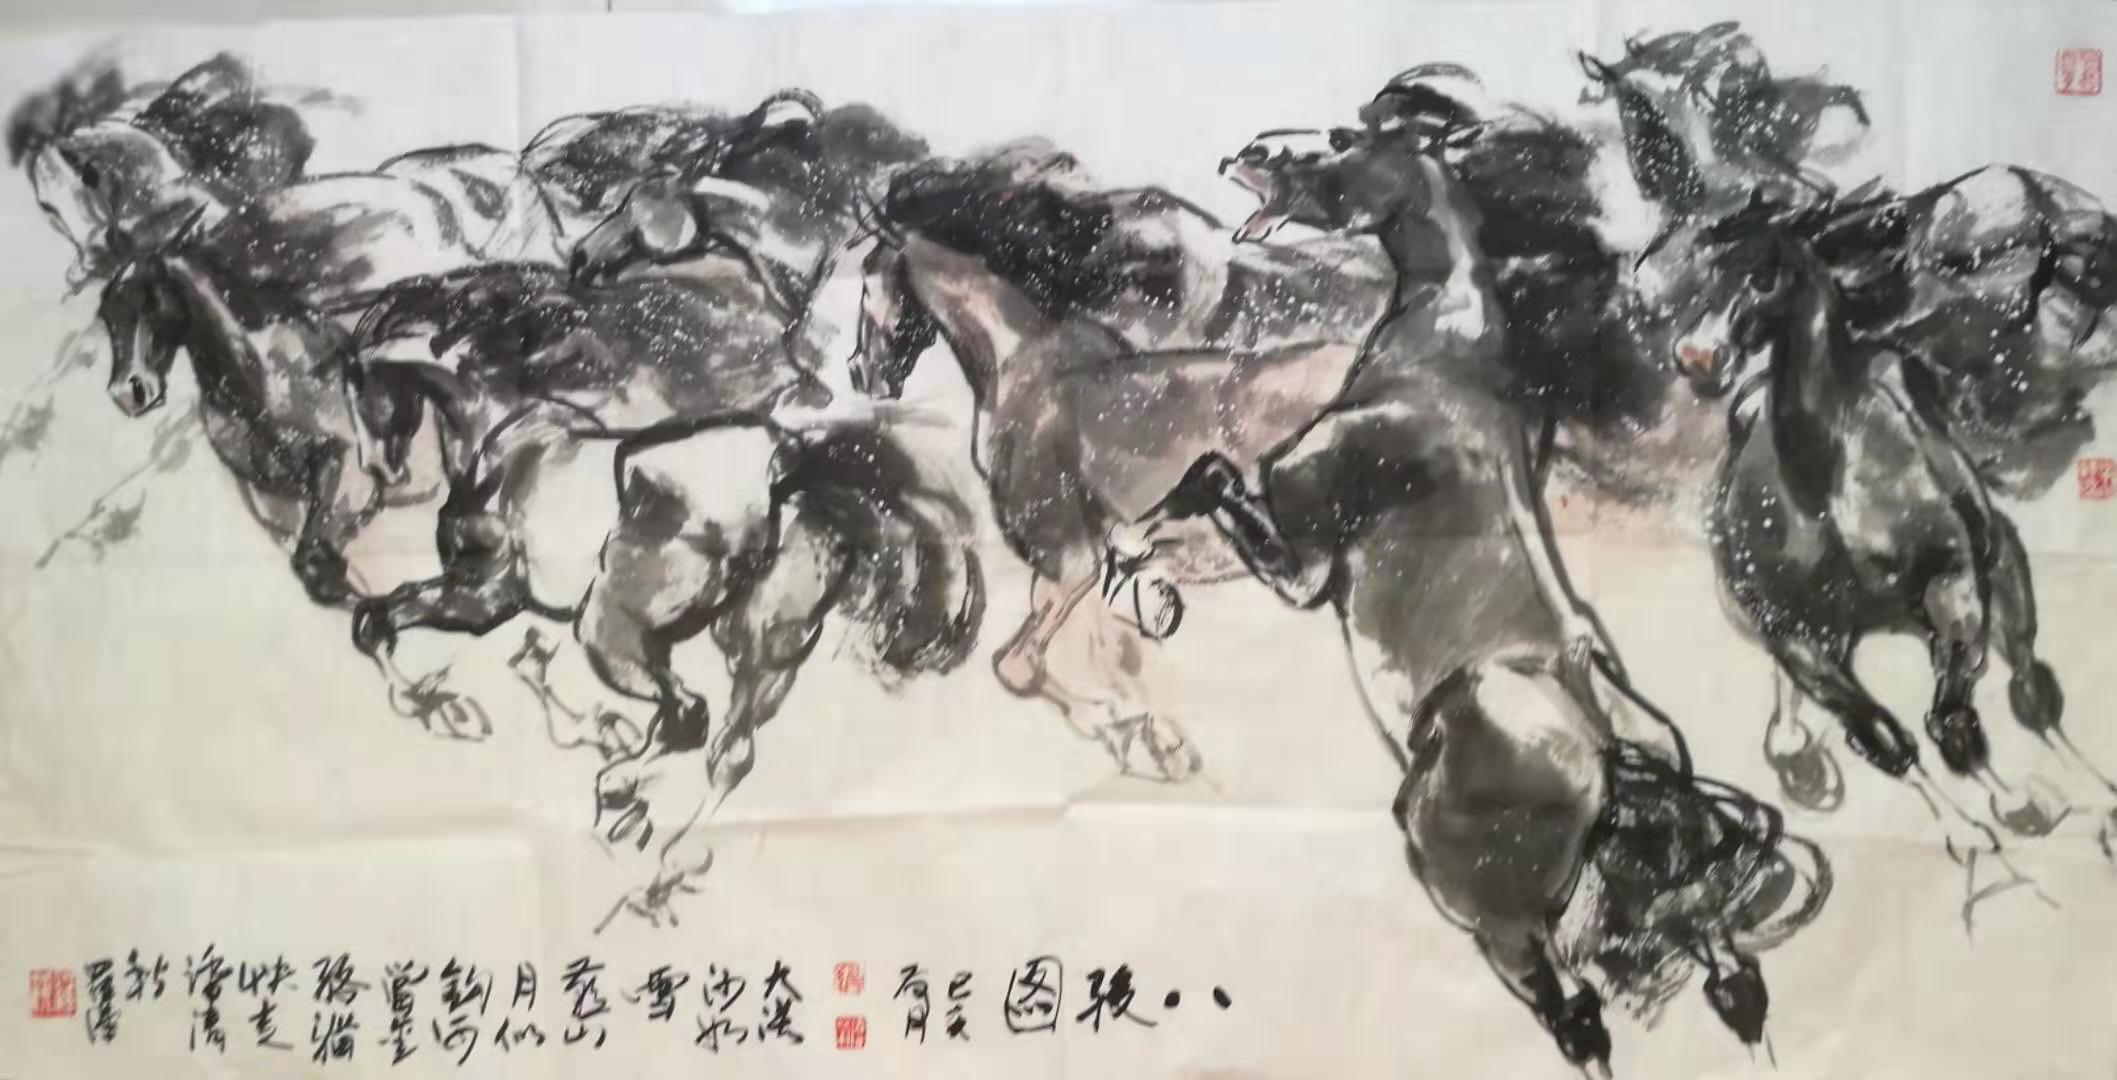 八骏图
己亥
月
大漠
沙如
雪
燕山
月似
钩何
當金
络腦
快走
踏清
秋